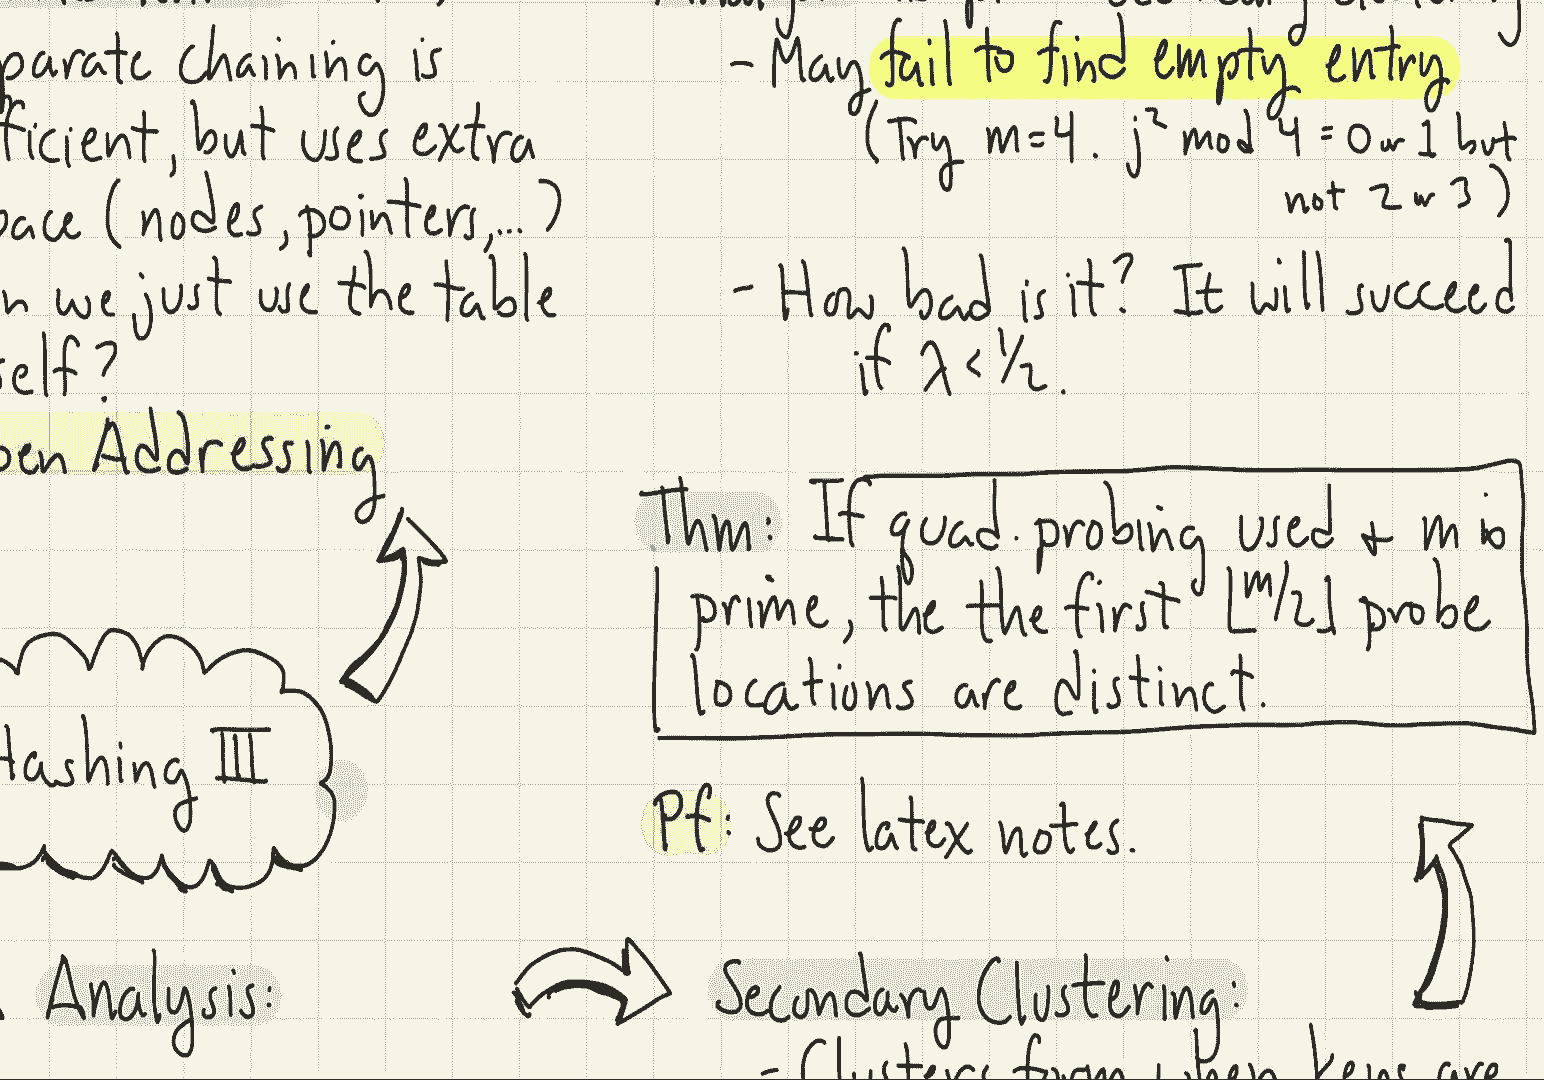 parate chaining is
ficient, but uses extra
pace (nodes, pointers,...)
n we just use the table
self?
pen Addressing
Hashing III
Analysis:
- May fail to find empty entry
(Try m=4. j² mod 4 = 0 or 1 but
not 2 or 3)
- How bad is it? It will succeed
if λ < 1/2.
Thm: If quad. probing used + m is
prime, the the first ⌊m/2⌋ probe
locations are distinct.
Pf: See latex notes.
Secondary Clustering:
- Clusters form when keys are